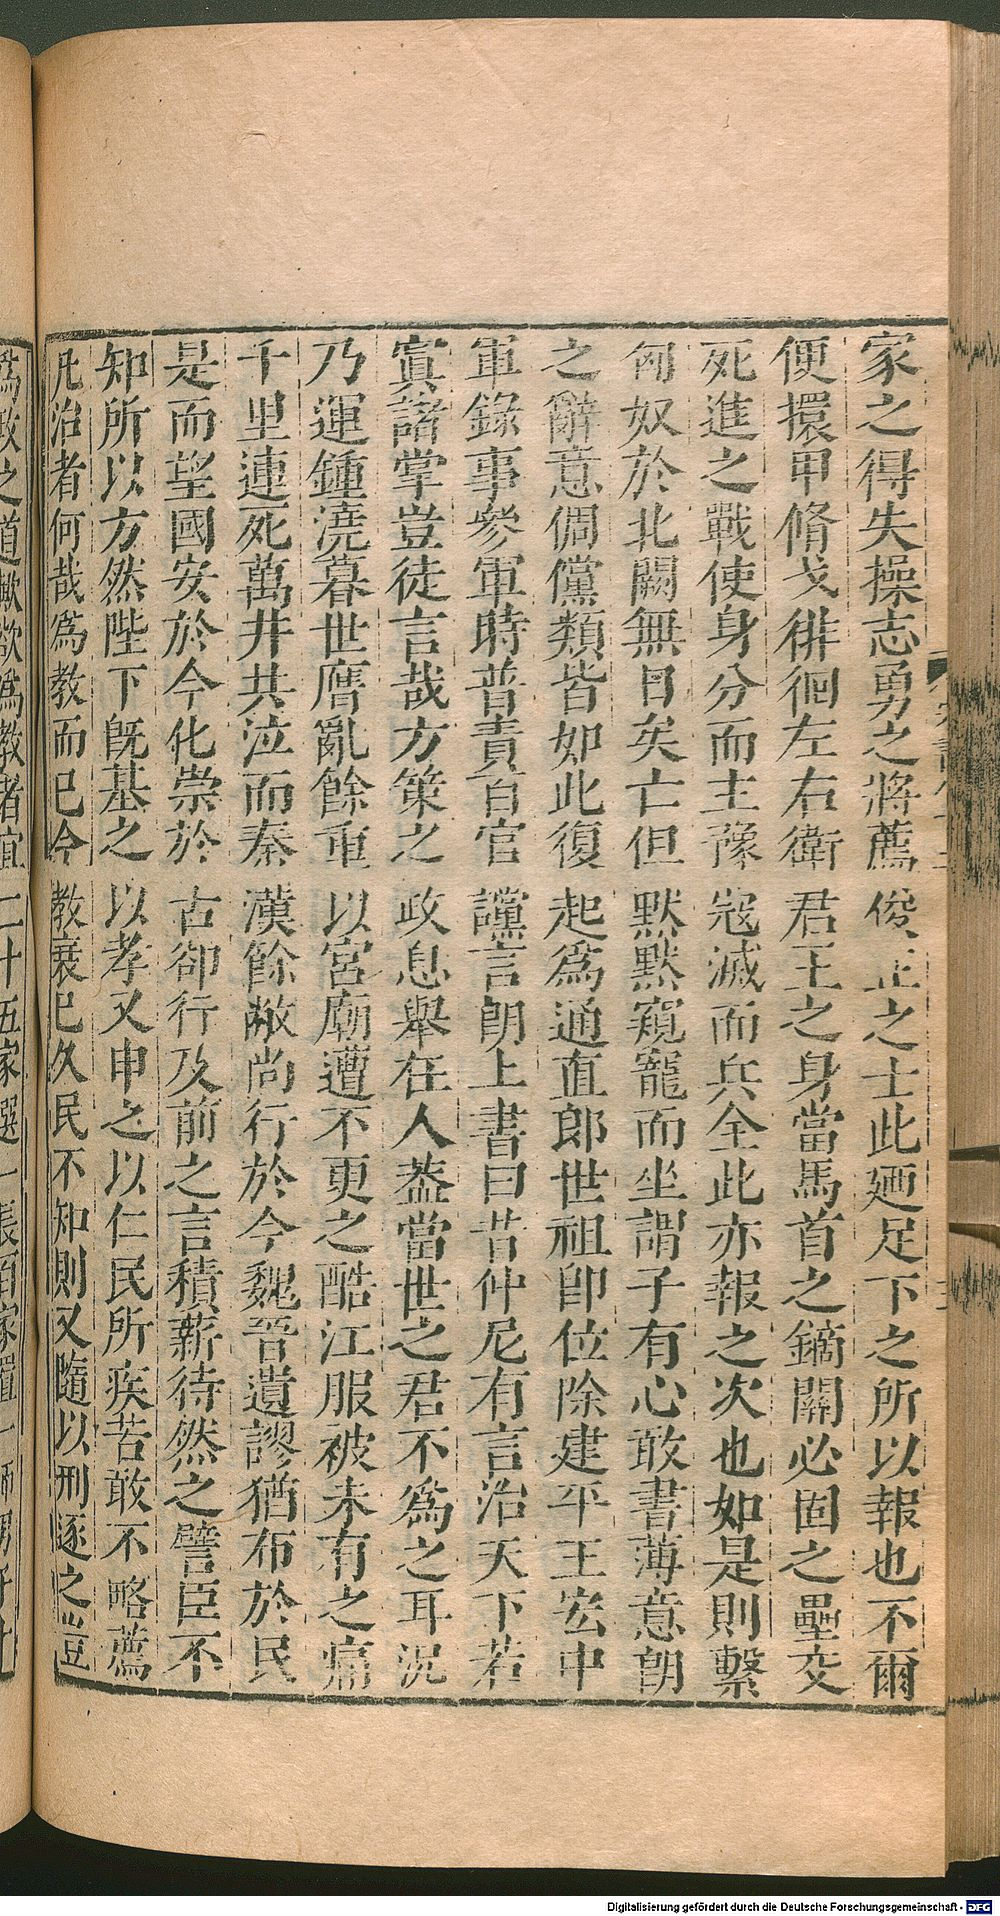 家之得失操志勇之將薦俊正之士此廼足下之所以報也不爾
便擐甲脩戈徘徊左右衛君王之身當馬首之鏑關必固之壘交
死進之戰使身分而主豫寇滅而兵全此亦報之次也如是則繫
匈奴於北闕無日矣亡但默默窺寵而坐謂子有心敢書薄意朗
之辭意倜儻類皆如此復起爲通直郎世祖卽位除建平王宏中
軍錄事參軍時普責百官讜言朗上書曰昔仲尼有言治天下若
寘諸掌豈徒言哉方策之政息舉在人葢當世之君不爲之耳況
乃運鍾澆暮世膺亂餘重以宮廟遭不更之酷江服被未有之痛
千里連死萬井共泣而秦漢餘敝尚行於今魏晉遺謬猶布於民
是而望國安於今化崇於古卻行及前之言積薪待然之譬臣不
知所以方然陛下旣基之以孝又申之以仁民所疾苦敢不略薦
凡治者何哉爲教而已今教衰已久民不知則又隨以刑逐之豈
爲政之道歟欲爲教者宜二十五家選一長百家置一師男子
Digitalisierung gefördert durch die Deutsche Forschungsgemeinschaft - DFG